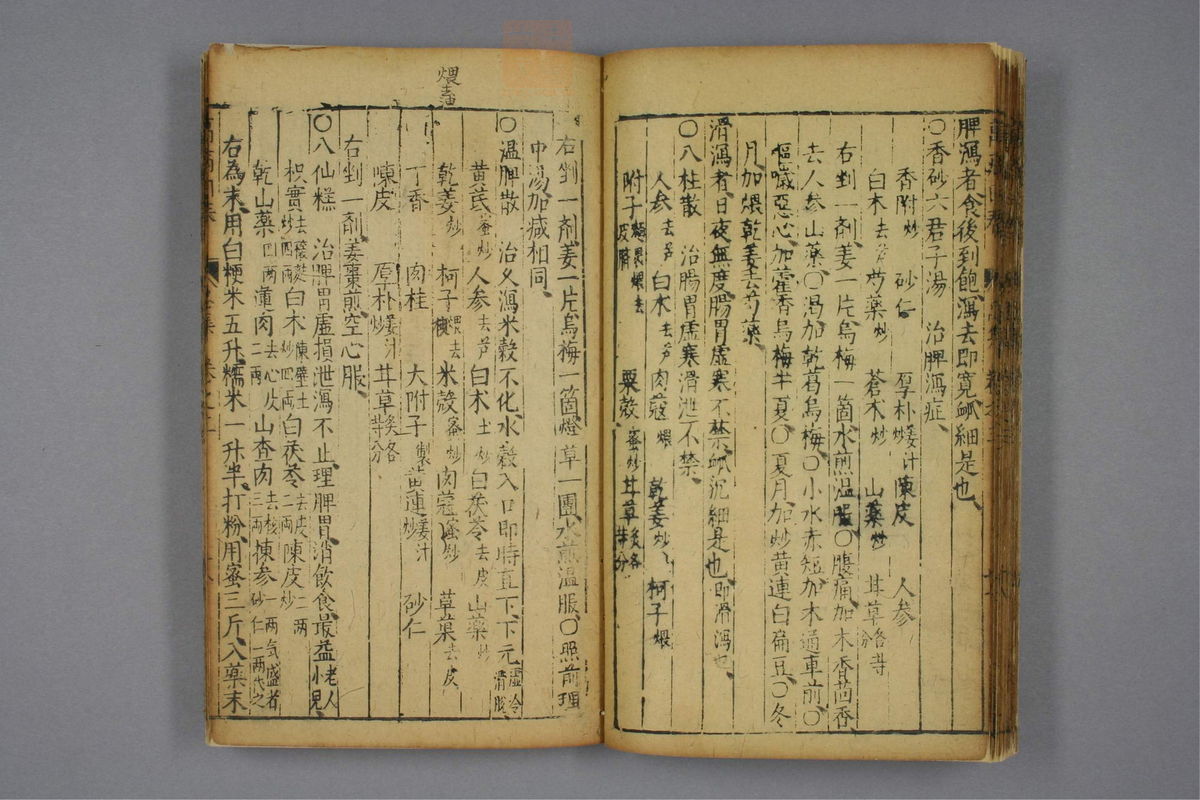 脾瀉者食後到飽瀉去即寬脉細是也
〇香砂六君子湯 治脾瀉症
香附炒 砂仁 厚朴姜汁炒 陳皮 人參
白术去芦 芍藥炒 蒼术炒 山藥炒 甘草各等分
右剉一剤姜一片烏梅一箇水煎温服〇腹痛加木香茴香
去人參山藥〇渴加乾葛烏梅〇小水赤短加木通車前〇
嘔噦惡心加藿香烏梅半夏〇夏月加炒黄連白扁豆〇冬
月加煨乾姜去芍藥
滑瀉者日夜無度腸胃虛寒不禁脉沉細是也即滑瀉也
〇八柱散 治腸胃虛寒滑泄不禁
人參去芦 白术去芦 肉蔻煨 乾姜炒 柯子煨
附子麵裹煨去皮臍 粟殼蜜炒 甘草炙各等分
右剉一剤姜一片烏梅一箇燈草一團水煎温服〇照前理
中湯加减相同
〇温脾散 治久瀉米穀不化水穀入口即時直下下元虛冷滑脫
黄芪蜜炒 人參去芦 白术土炒 白茯苓去皮 山藥炒
乾姜炒 柯子煨去核 米殼蜜炒 肉蔻蜜炒 草菓去皮
丁香 肉桂 大附子製 黄連姜汁炒 砂仁
陳皮 厚朴姜汁炒 甘草炙各等分
右剉一剤姜棗煎空心服
〇八仙糕 治脾胃虛損泄瀉不止理脾胃消飲食最益老人小兒
枳實去穰麩炒四兩 白术陳壁土炒四兩 白茯苓去皮二兩 陳皮二兩炒
乾山藥四兩 蓮肉去心皮二兩 山查肉去核三兩 楝參一兩気盛者砂仁一兩代之
右為末用白粳米五升糯米一升半打粉用蜜三斤入藥末
煨